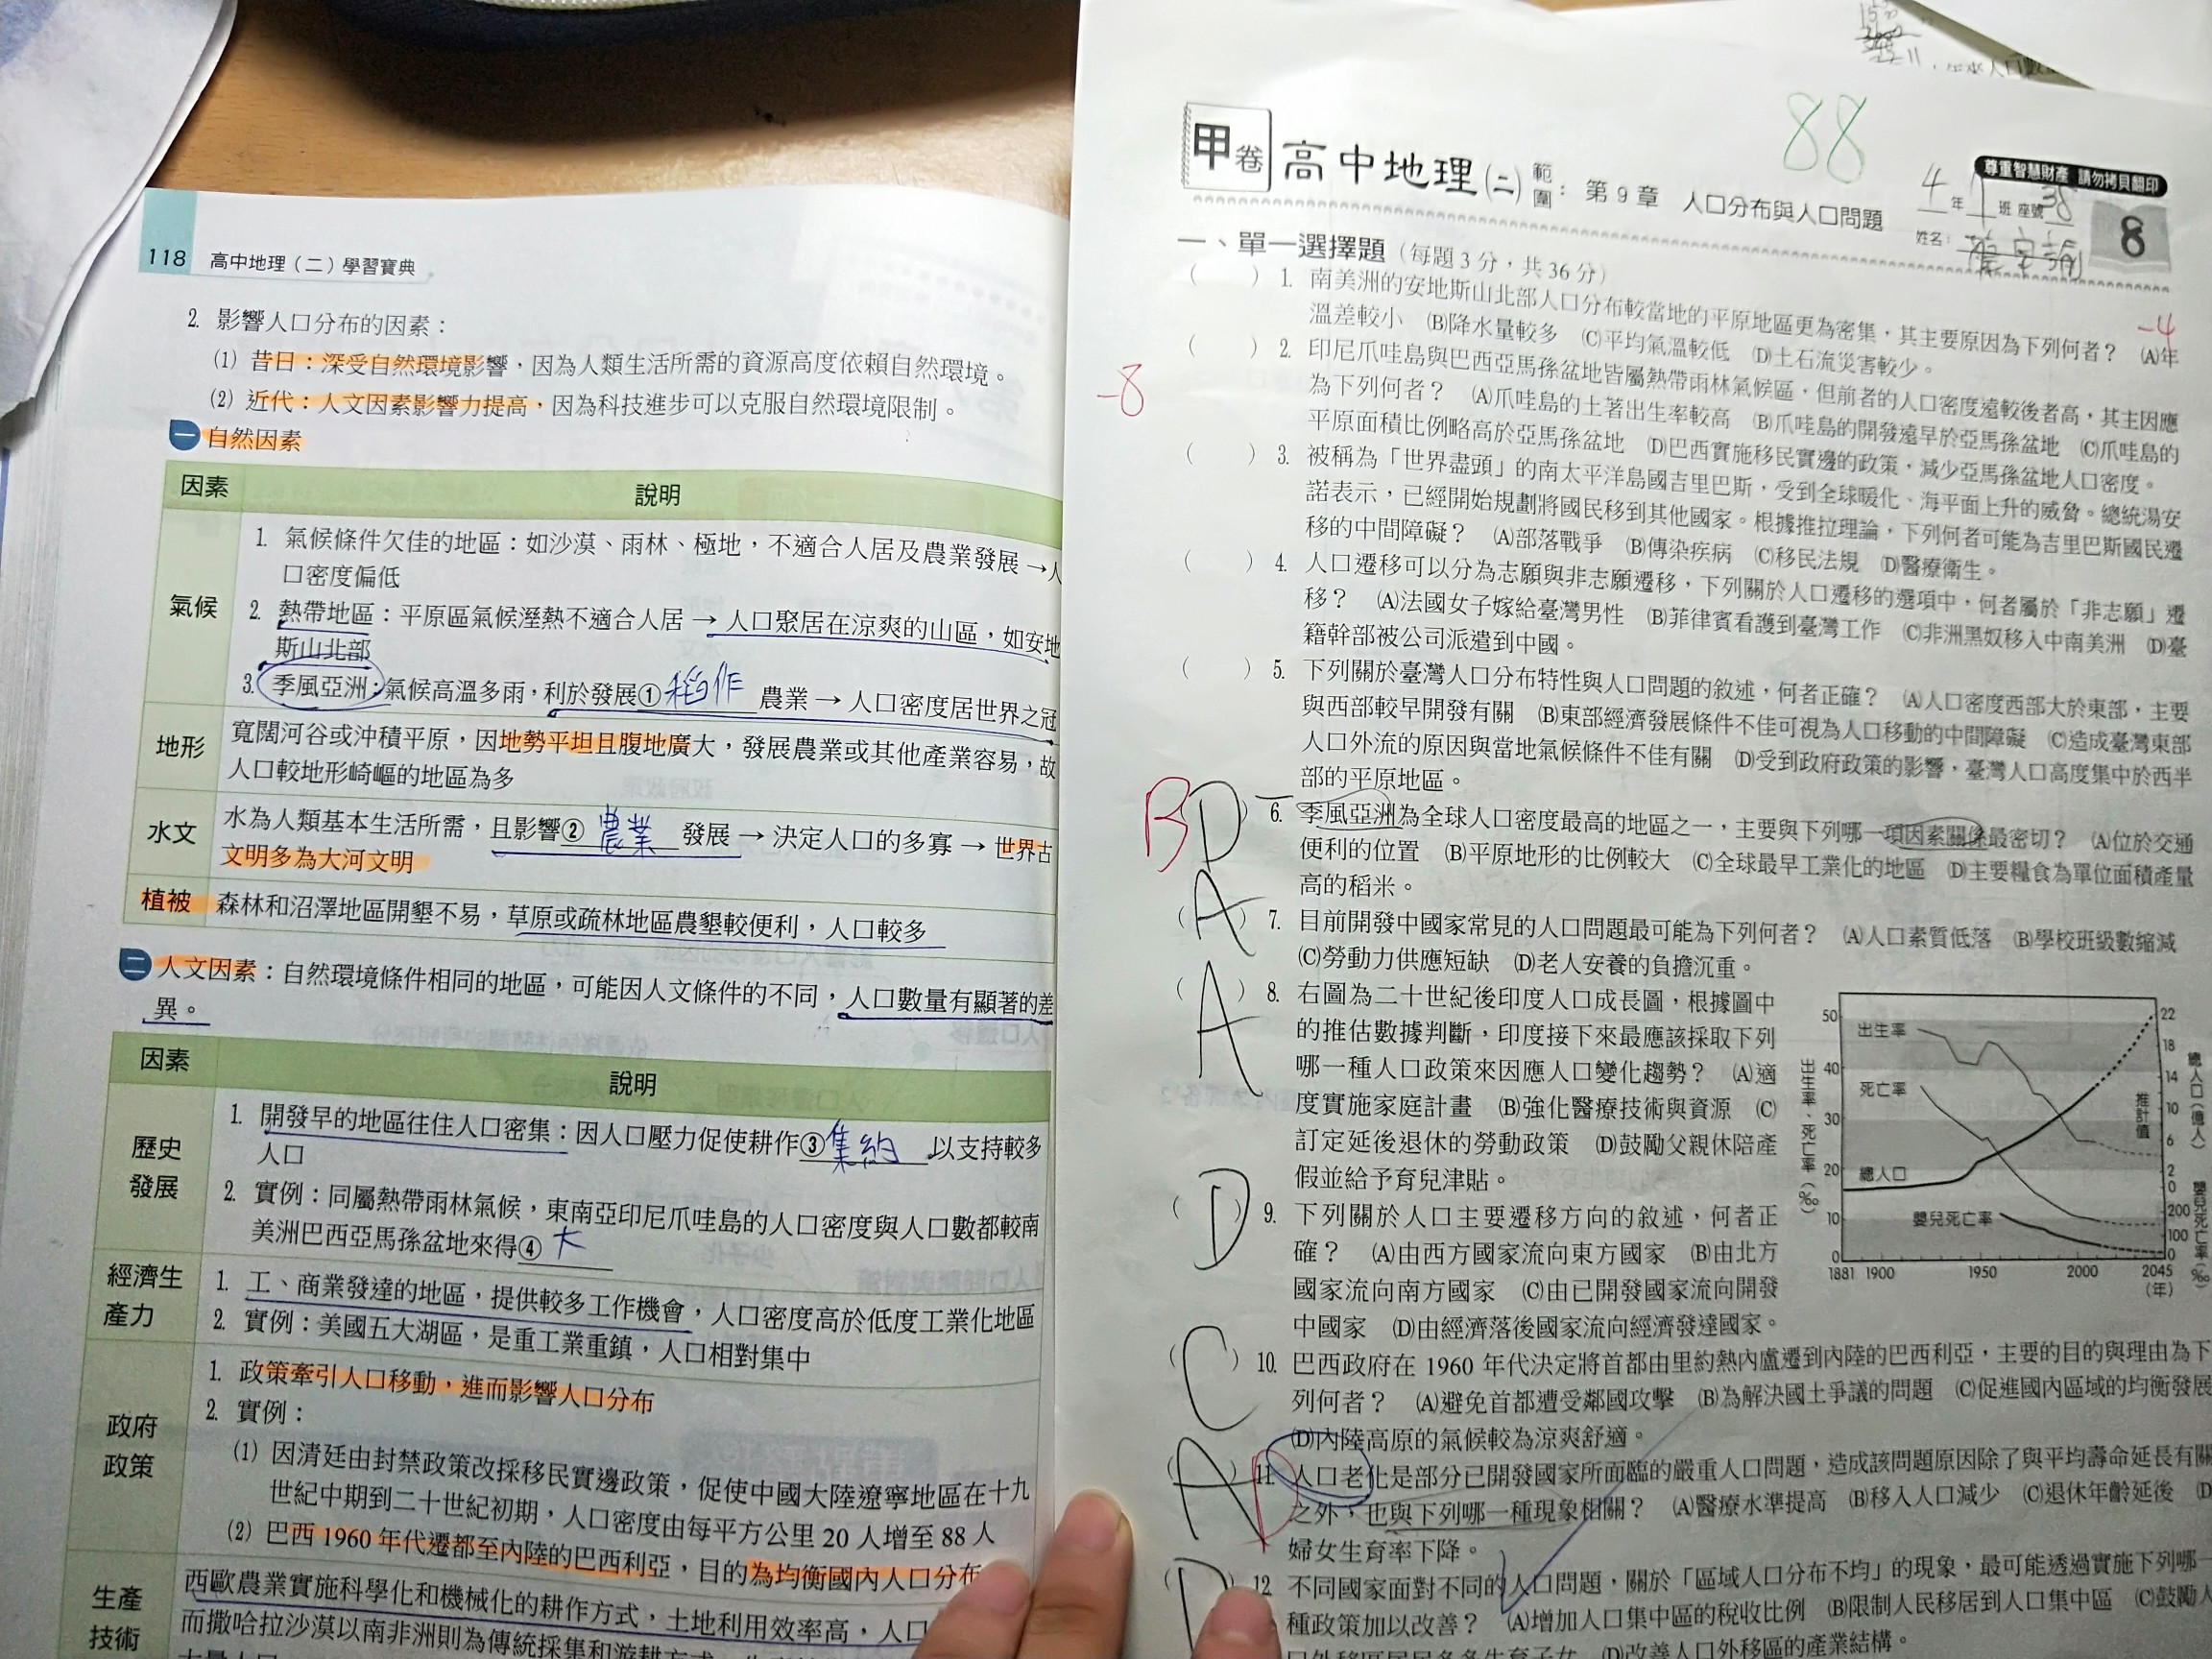 118 高中地理（二）學習寶典
2. 影響人口分布的因素：
(1) 昔日：深受自然環境影響，因為人類生活所需的資源高度依賴自然環境。
(2) 近代：人文因素影響力提高，因為科技進步可以克服自然環境限制。
一 自然因素
因素 說明
氣候
1. 氣候條件欠佳的地區：如沙漠、雨林、極地，不適合人居及農業發展→人
口密度偏低
2. 熱帶地區：平原區氣候溼熱不適合人居→人口聚居在涼爽的山區，如安地
斯山北部
3. 季風亞洲：氣候高溫多雨，利於發展①稻作 農業→人口密度居世界之冠
地形
寬闊河谷或沖積平原，因地勢平坦且腹地廣大，發展農業或其他產業容易，故
人口較地形崎嶇的地區為多
水文
水為人類基本生活所需，且影響②農業 發展→決定人口的多寡→世界古
文明多為大河文明
植被 森林和沼澤地區開墾不易，草原或疏林地區農墾較便利，人口較多
二 人文因素：自然環境條件相同的地區，可能因人文條件的不同，人口數量有顯著的差
異。
因素 說明
歷史
發展
1. 開發早的地區往往人口密集：因人口壓力促使耕作③集約 以支持較多
人口
2. 實例：同屬熱帶雨林氣候，東南亞印尼爪哇島的人口密度與人口數都較南
美洲巴西亞馬孫盆地來得④大
經濟生
產力
1. 工、商業發達的地區，提供較多工作機會，人口密度高於低度工業化地區
2. 實例：美國五大湖區，是重工業重鎮，人口相對集中
政府
政策
1. 政策牽引人口移動，進而影響人口分布
2. 實例：
(1) 因清廷由封禁政策改採移民實邊政策，促使中國大陸遼寧地區在十九
世紀中期到二十世紀初期，人口密度由每平方公里 20 人增至 88 人
(2) 巴西 1960 年代遷都至內陸的巴西利亞，目的為均衡國內人口分布
生產
技術
西歐農業實施科學化和機械化的耕作方式，土地利用效率高，人口
而撒哈拉沙漠以南非洲則為傳統採集和游耕方式，
88
甲卷 高中地理(二) 範圍：第 9 章 人口分布與人口問題
尊重智慧財產 請勿拷貝翻印
4 年 1 班 座號 38
姓名：
8
一、單一選擇題（每題 3 分，共 36 分）
-4
-8
( ) 1. 南美洲的安地斯山北部人口分布較當地的平原地區更為密集，其主要原因為下列何者？ (A)年
溫差較小 (B)降水量較多 (C)平均氣溫較低 (D)土石流災害較少。
( ) 2. 印尼爪哇島與巴西亞馬孫盆地皆屬熱帶雨林氣候區，但前者的人口密度遠較後者高，其主因應
為下列何者？ (A)爪哇島的土著出生率較高 (B)爪哇島的開發遠早於亞馬孫盆地 (C)爪哇島的
平原面積比例略高於亞馬孫盆地 (D)巴西實施移民實邊的政策，減少亞馬孫盆地人口密度。
( ) 3. 被稱為「世界盡頭」的南太平洋島國吉里巴斯，受到全球暖化、海平面上升的威脅。總統湯安
諾表示，已經開始規劃將國民移到其他國家。根據推拉理論，下列何者可能為吉里巴斯國民遷
移的中間障礙？ (A)部落戰爭 (B)傳染疾病 (C)移民法規 (D)醫療衛生。
( ) 4. 人口遷移可以分為志願與非志願遷移，下列關於人口遷移的選項中，何者屬於「非志願」遷
移？ (A)法國女子嫁給臺灣男性 (B)菲律賓看護到臺灣工作 (C)非洲黑奴移入中南美洲 (D)臺
籍幹部被公司派遣到中國。
( ) 5. 下列關於臺灣人口分布特性與人口問題的敘述，何者正確？ (A)人口密度西部大於東部，主要
與西部較早開發有關 (B)東部經濟發展條件不佳可視為人口移動的中間障礙 (C)造成臺灣東部
人口外流的原因與當地氣候條件不佳有關 (D)受到政府政策的影響，臺灣人口高度集中於西半
部的平原地區。
B D ) 6. 季風亞洲為全球人口密度最高的地區之一，主要與下列哪一項因素關係最密切？ (A)位於交通
便利的位置 (B)平原地形的比例較大 (C)全球最早工業化的地區 (D)主要糧食為單位面積產量
高的稻米。
( A ) 7. 目前開發中國家常見的人口問題最可能為下列何者？ (A)人口素質低落 (B)學校班級數縮減
(C)勞動力供應短缺 (D)老人安養的負擔沉重。
( A ) 8. 右圖為二十世紀後印度人口成長圖，根據圖中
的推估數據判斷，印度接下來最應該採取下列
哪一種人口政策來因應人口變化趨勢？ (A)適
度實施家庭計畫 (B)強化醫療技術與資源 (C)
訂定延後退休的勞動政策 (D)鼓勵父親休陪產
假並給予育兒津貼。
出生率、死亡率（‰）
50
40
30
20
10
0
出生率
死亡率
總人口
嬰兒死亡率
推計值
22
18
14
10
6
2
0
200
100
0
總人口（億人）
嬰兒死亡率（‰）
1881 1900 1950 2000 2045
（年）
( D ) 9. 下列關於人口主要遷移方向的敘述，何者正
確？ (A)由西方國家流向東方國家 (B)由北方
國家流向南方國家 (C)由已開發國家流向開發
中國家 (D)由經濟落後國家流向經濟發達國家。
( C ) 10. 巴西政府在 1960 年代決定將首都由里約熱內盧遷到內陸的巴西利亞，主要的目的與理由為下
列何者？ (A)避免首都遭受鄰國攻擊 (B)為解決國土爭議的問題 (C)促進國內區域的均衡發展
(D)內陸高原的氣候較為涼爽舒適。
( A D 11. 人口老化是部分已開發國家所面臨的嚴重人口問題，造成該問題原因除了與平均壽命延長有關
之外，也與下列哪一種現象相關？ (A)醫療水準提高 (B)移入人口減少 (C)退休年齡延後 (D
婦女生育率下降。
( D 12 不同國家面對不同的人口問題，關於「區域人口分布不均」的現象，最可能透過實施下列哪一
種政策加以改善？ (A)增加人口集中區的稅收比例 (B)限制人民移居到人口集中區 (C)鼓勵人
口外移區居民多多生育子女 (D)改善人口外移區的產業結構。